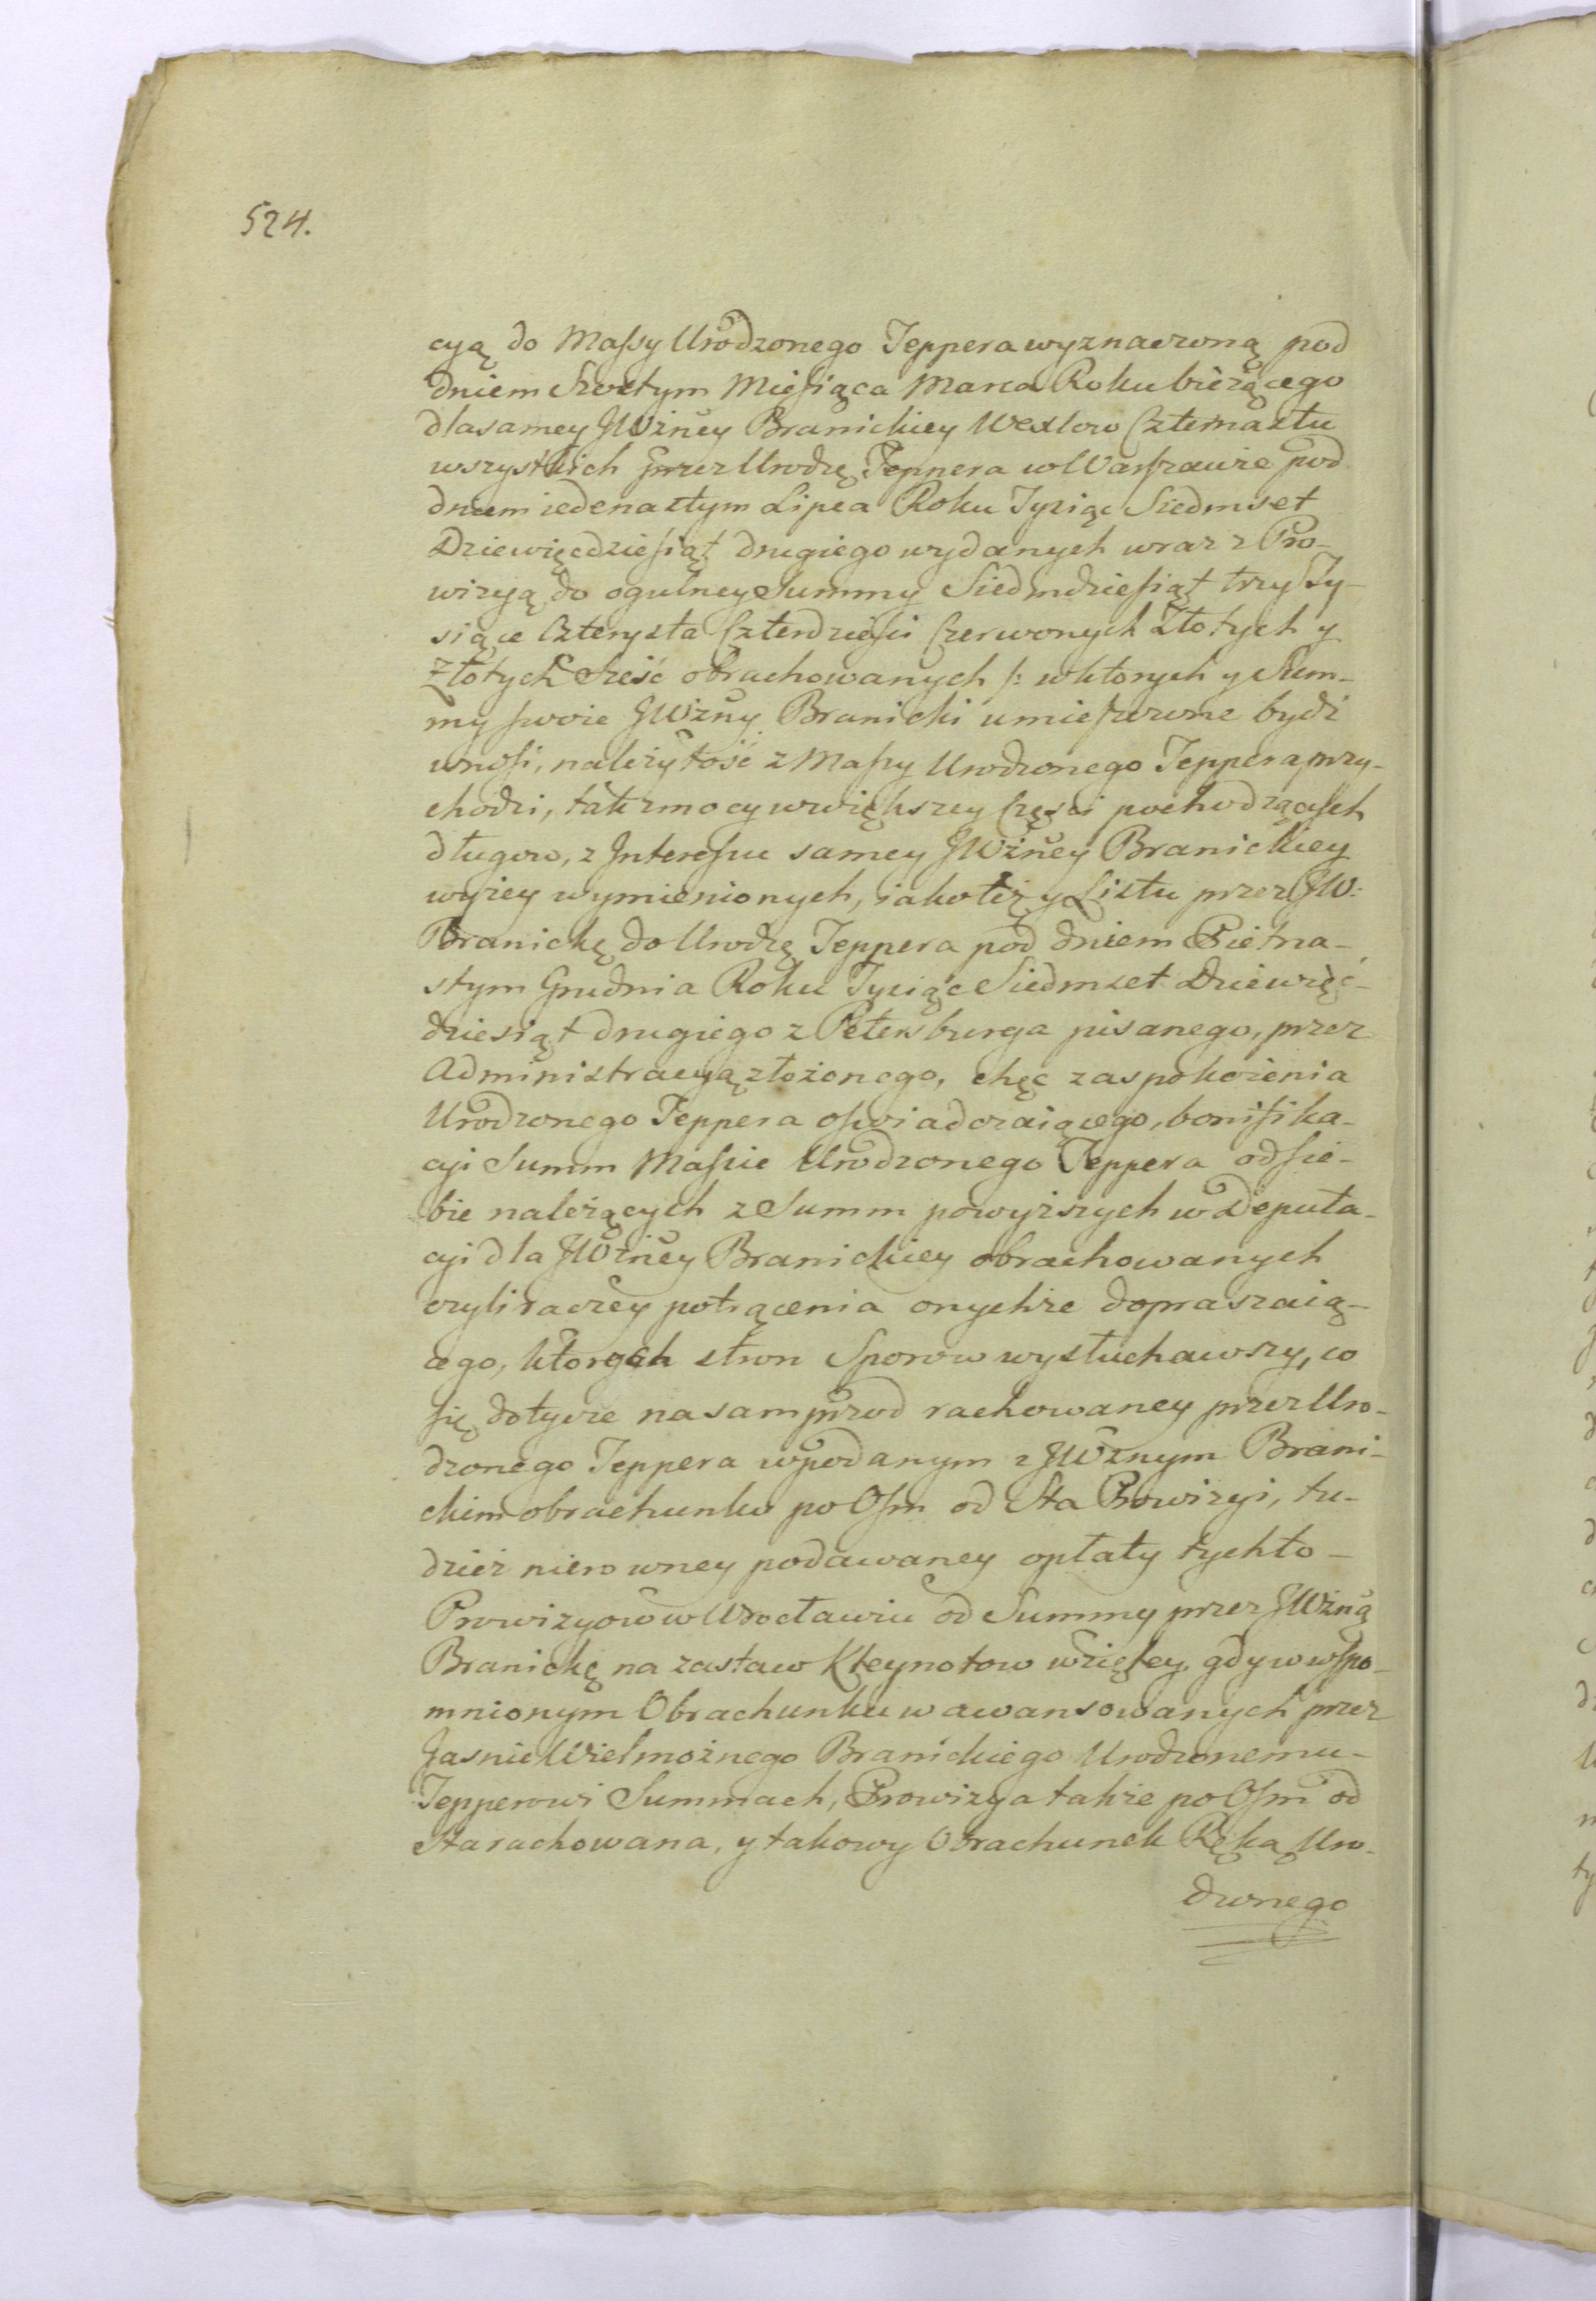 524.
cyą do Massy Urodzonego Teppera wyznaczoną pod
dniem Szostym Miesiąca Marca Roku bieżącego
dla samey JWżney Branickiey Wexlow Czternastu
wszystkich przez Urodzę Teppera w Warszawie pod
dniem iedenastym Lipca Roku Tysiąc Siedmset
Dziewięćdziesiąt drugiego wydanych wraz z Pro-
wizyą do ogulney Summy Siedmdziesiąt trzy Ty-
siące Czterysta Czterdzieści Czerwonych Złotych y
Złotych Sześć obrachowanych /: w ktorych y Sum-
my swoie JWżny Branicki umieszczone bydź
wnosi, należytość z Massy Urodzonego Teppera przy-
chodzi, tak z mocy w większey Częsci pochodzących
długow, z Interessu samey JWżney Branickiey
wyżey wymienionych, iako też y Listu przez JW:
Branickę do Urodzę Teppera pod dniem Pietna-
stym Grudnia Roku Tysiąc Siedmset Dziewięć-
dziesiąt drugiego z Petersburga pisanego, przez
Administracyą złożonego, chęc zaspokoienia
Urodzonego Teppera oswiadczaiącego, bonifika-
cyi Summ Massie Urodzonego Teppera od sie-
bie należących z Summ powyższych w Deputa-
cyi dla JWżney Branickiey obrachowanych
czyli raczey potrącenia onychże dopraszaią-
cego, ktorych stron Sporow wysłuchawszy, co
się dotycze nasamprzod rachowaney przez Uro-
dzonego Teppera w podanym z JWżnym Brani-
ckim obrachunku po Osm od Sta Prowizyi, tu-
dzież nierowney podawaney opłaty tychto-
Prowizyow w Wrocławiu od Summy przez JWżną
Branickę na zastaw Kleynotow wzięley, gdy w wspo-
mnionym Obrachunku w awansowanych przez
Jasnie Wielmożnego Branickiego Urodzonemu-
Tepperowi Summach, Prowizya także po Osm od
Sta rachowana, y takowy Obrachunek Ręką Uro-
dzonego